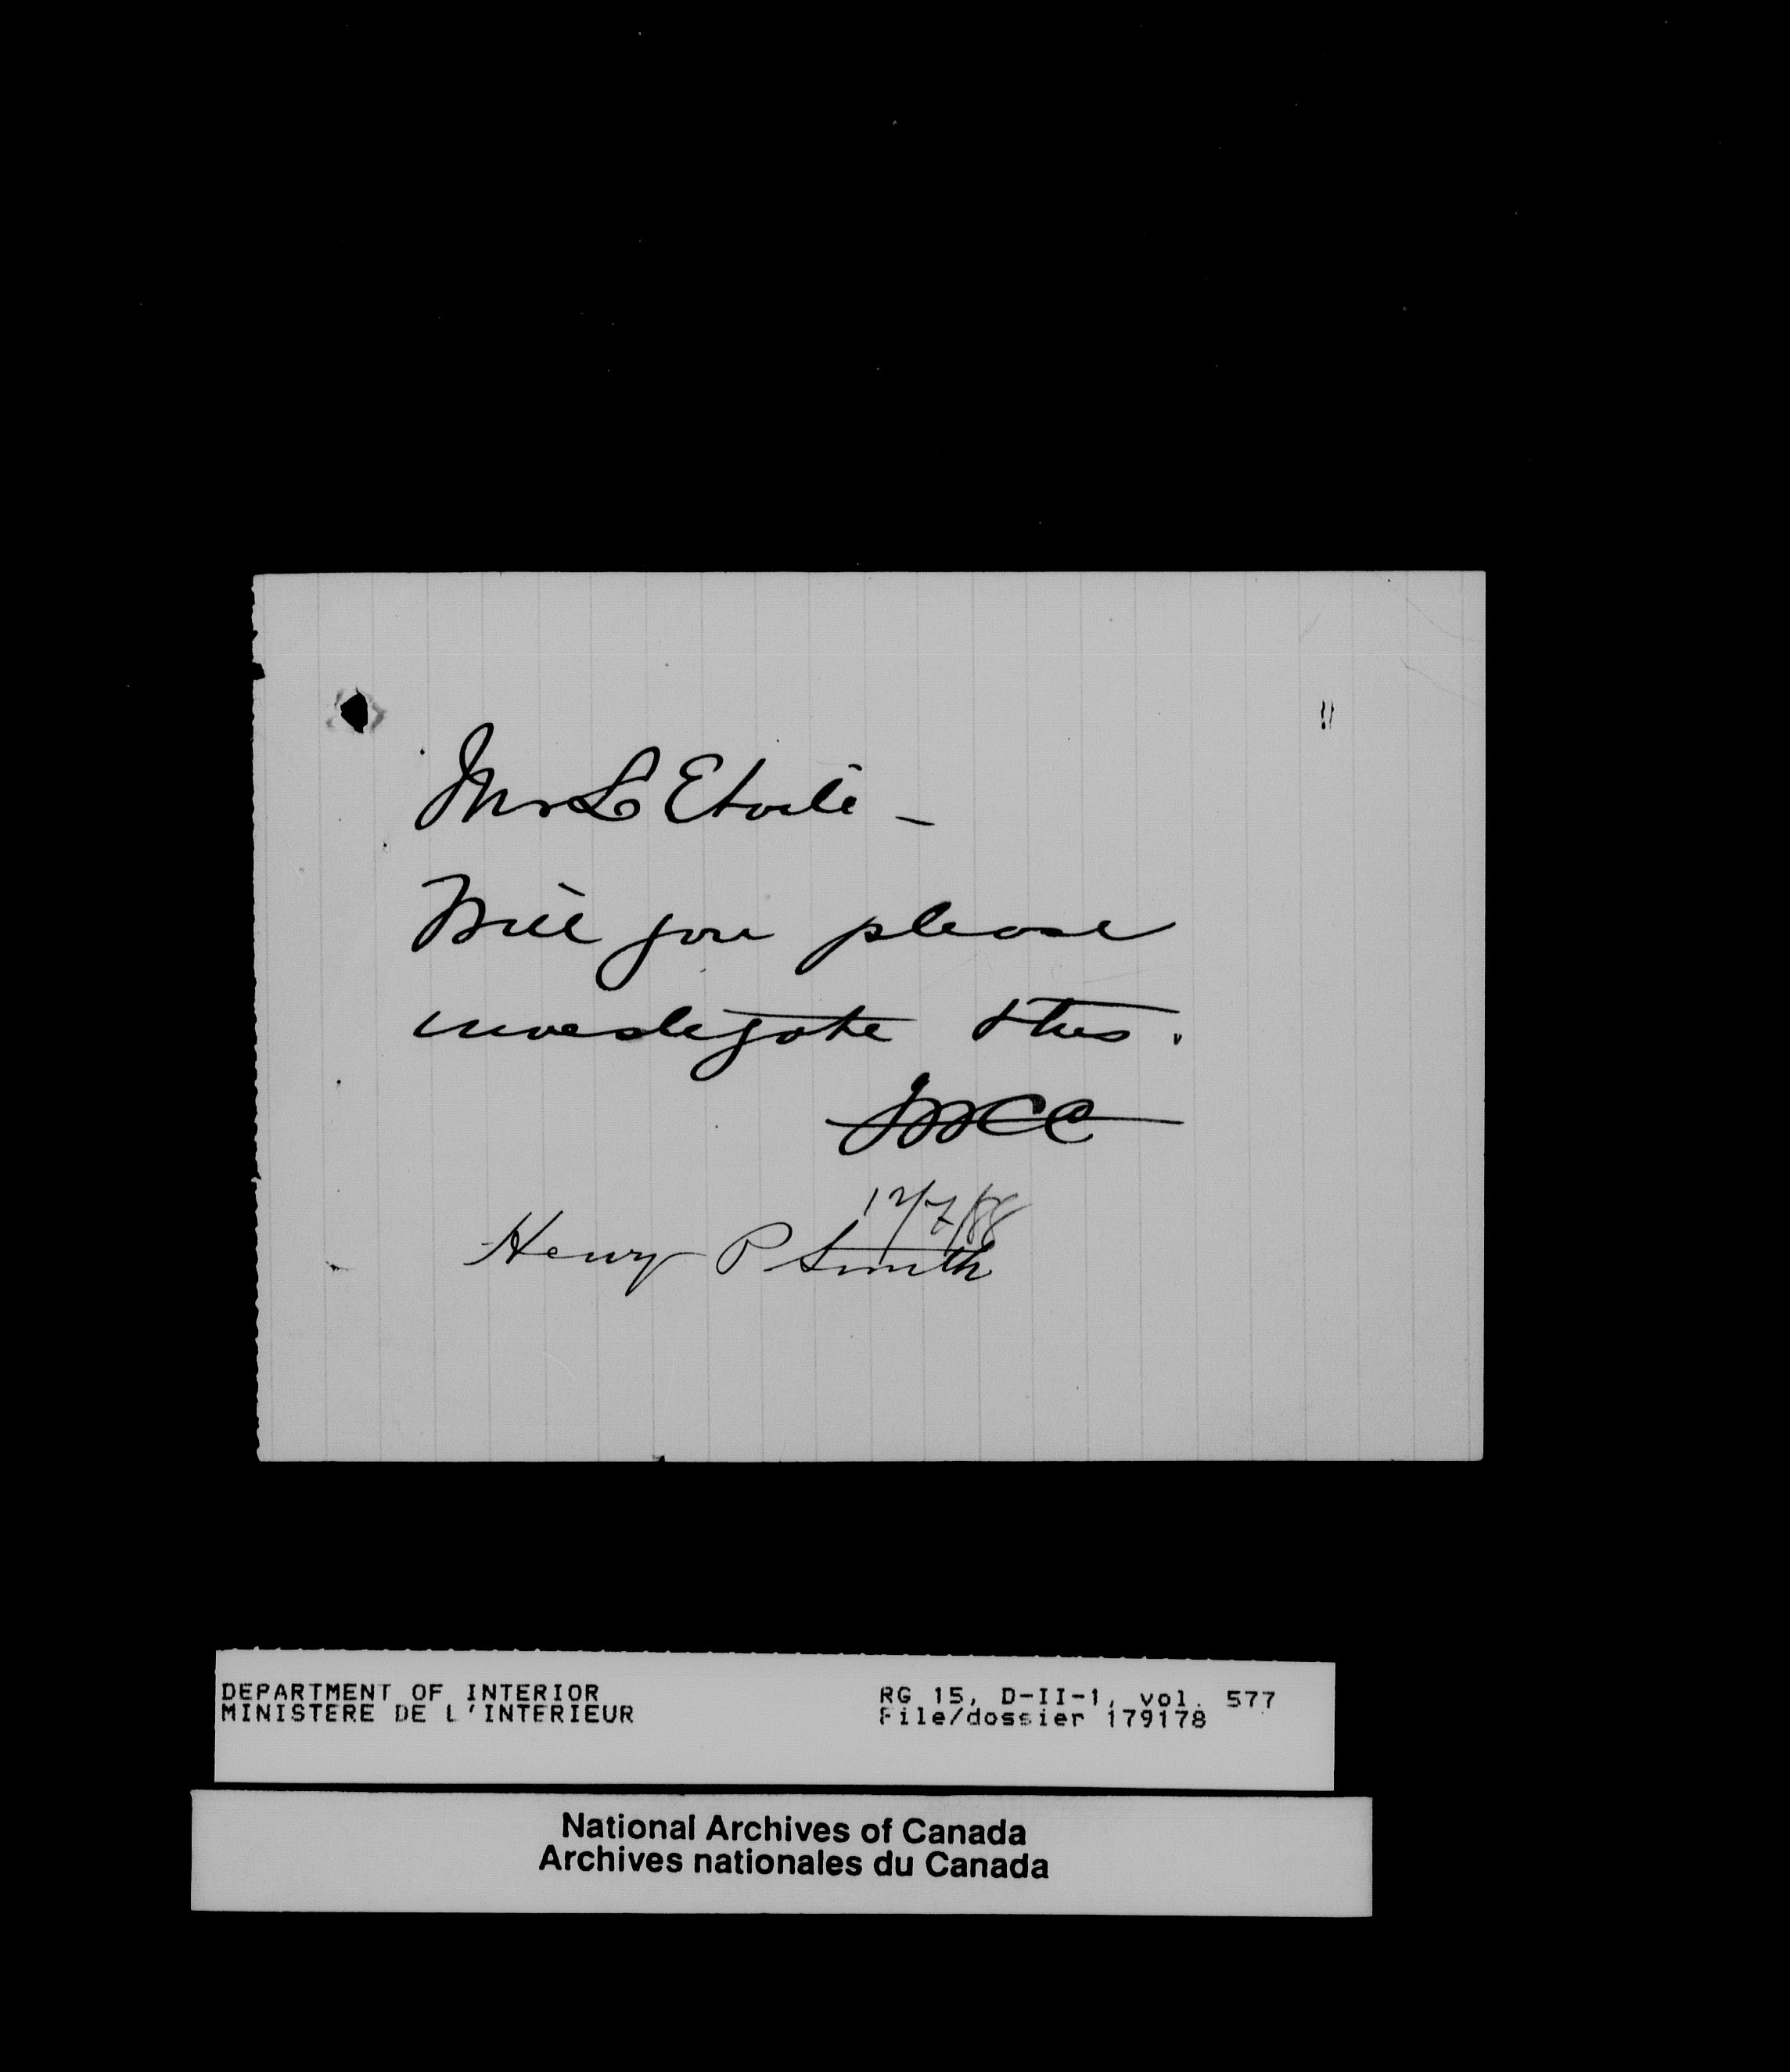 Mr L'Etoile –
Will you please
investigate this.
12/7/88
Henry P Smith
DEPARTMENT OF INTERIOR RG 15, D-II-1, vol. 577
MINISTERE DE L'INTERIEUR File/dossier 179178
National Archives of Canada
Archives nationales du Canada